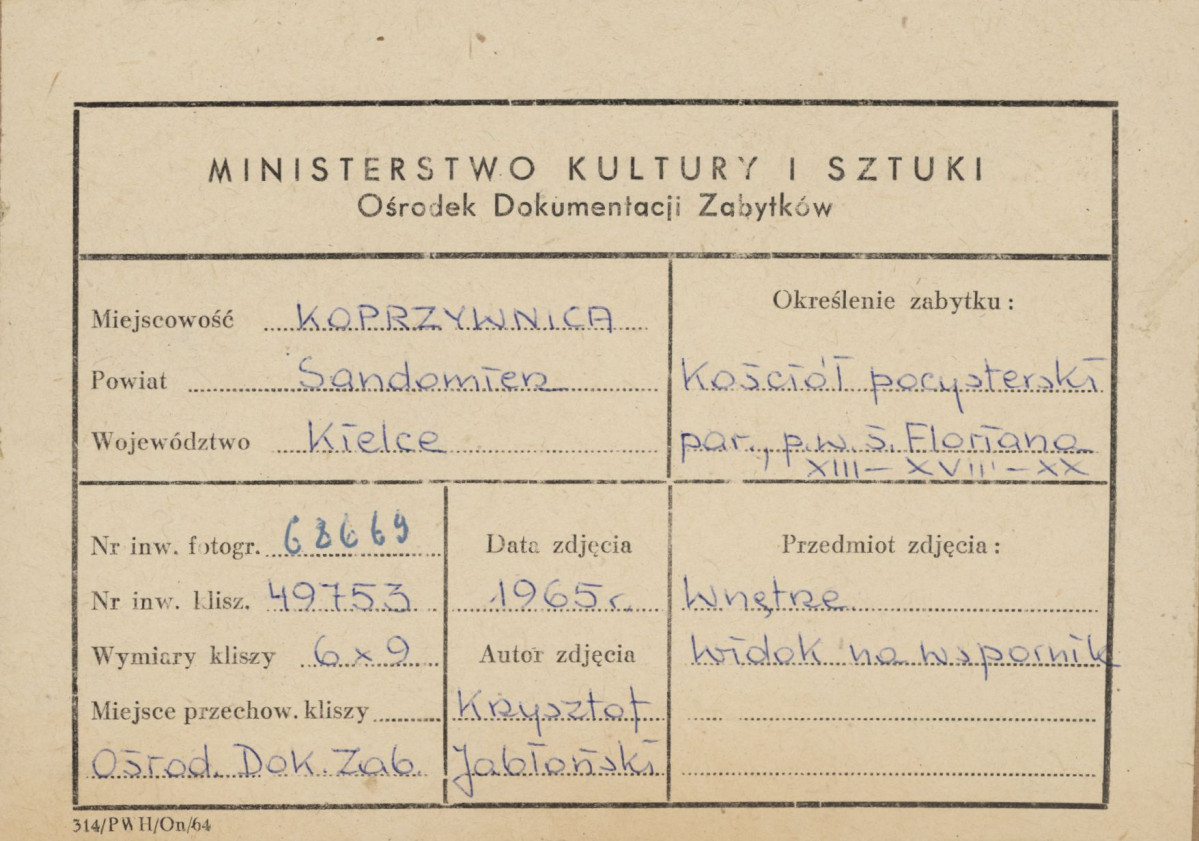 MINISTERSTWO KULTURY I SZTUKI
Ośrodek Dokumentacji Zabytków
Miejscowość KOPRZYWNICA
Powiat Sandomierz
Województwo Kielce
Określenie zabytku:
Kościół pocysterski
par., p.w. ś. Floriana
XIII–XVIII–XX
Nr inw. fotogr. 68669
Nr inw. klisz. 49753
Wymiary kliszy 6x9
Miejsce przechow. kliszy
Ośrod. Dok. Zab.
Data zdjęcia
1965 r.
Autor zdjęcia
Krzysztof
Jabłoński
Przedmiot zdjęcia:
Wnętrze
widok na wspornik
314/PWH/On/64